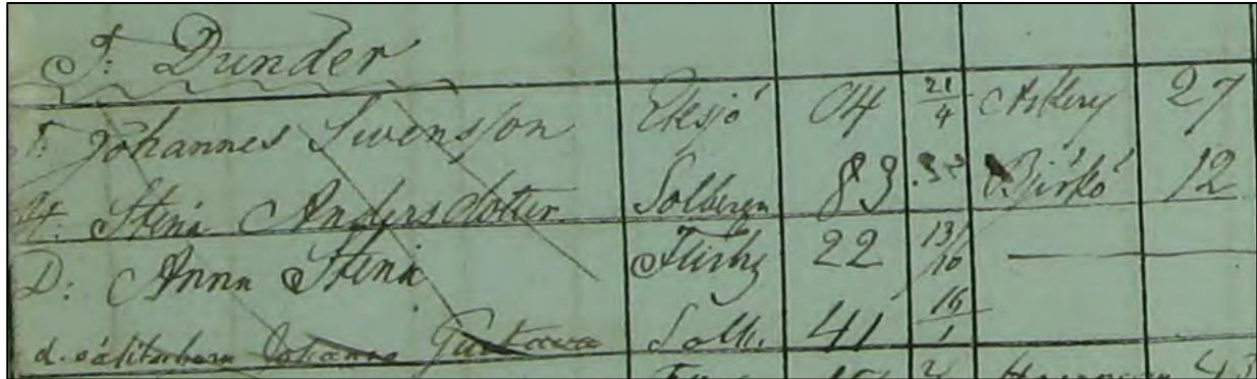 T. Dunder
T. Johannes Swensson Eksjö 04 21/4 Askery 27
H. Stina Andersdotter Solberga 83 Björkö 12
D: Anna Stina Flisby 22 13/10
d. oäkta barn Johanna Gustava Solb. 41 16/1